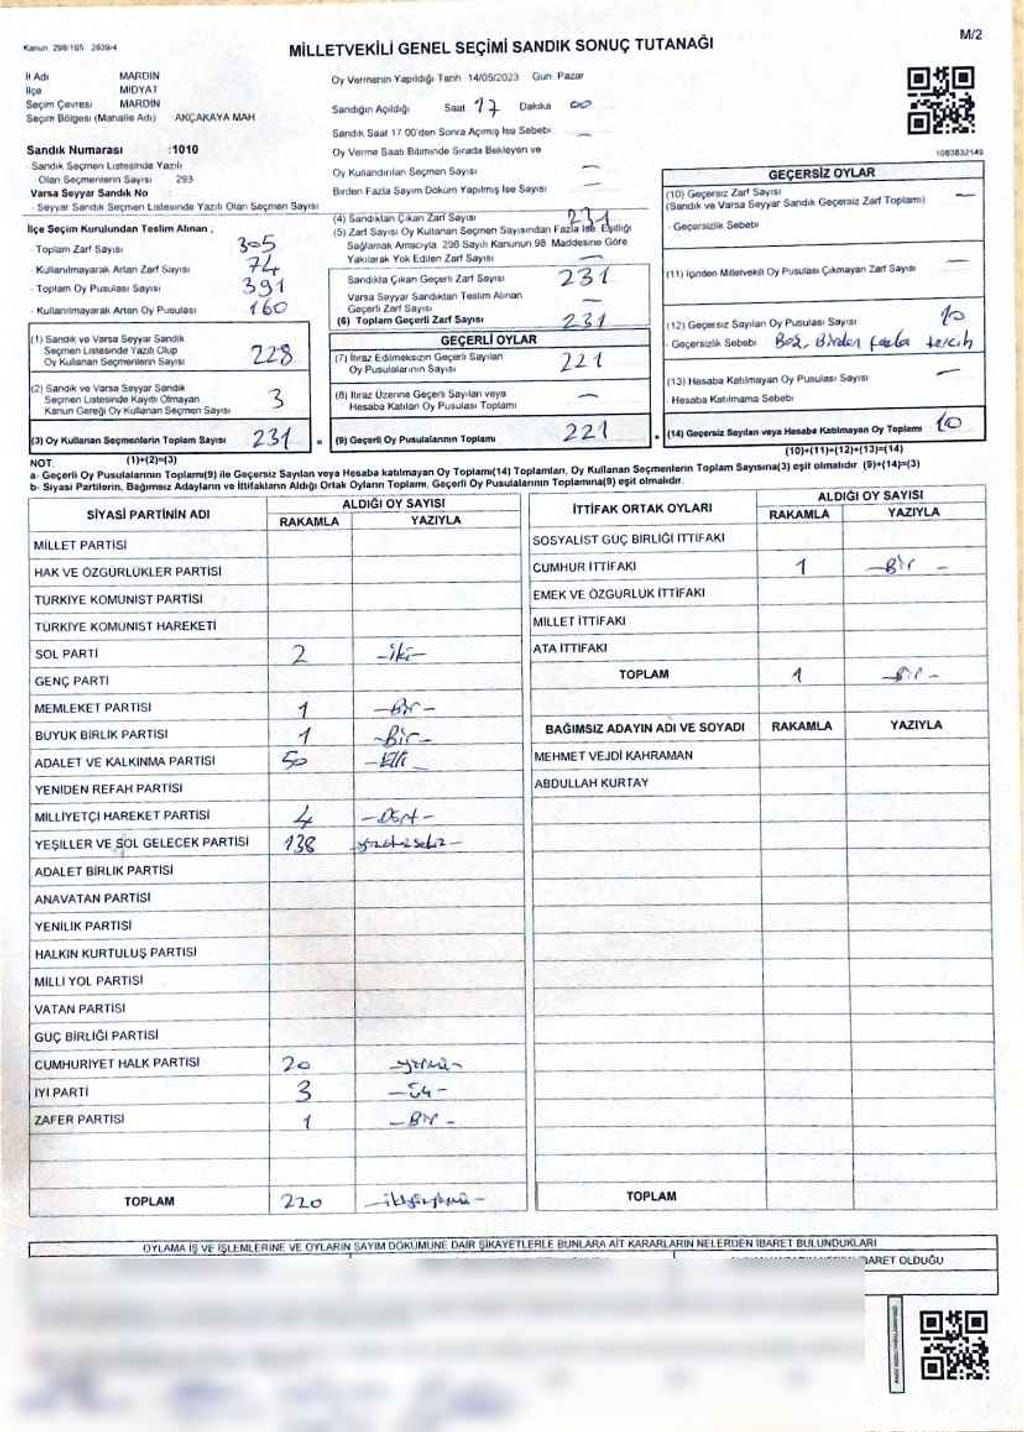 Kanun 298/105 2839/4
MİLLETVEKİLİ GENEL SEÇİMİ SANDIK SONUÇ TUTANAĞI
M/2
İl Adı MARDİN
İlçe MİDYAT
Seçim Çevresi MARDİN
Seçim Bölgesi (Mahalle Adı) AKÇAKAYA MAH
Sandık Numarası :1010
Sandık Seçmen Listesinde Yazılı
Olan Seçmenlerin Sayısı 293
Varsa Seyyar Sandık No :
Seyyar Sandık Seçmen Listesinde Yazılı Olan Seçmen Sayısı
Oy Vermenin Yapıldığı Tarih 14/05/2023 Gun. Pazar
Sandığın Açıldığı Saat 17 Dakika 00
Sandık Saat 17 00'den Sonra Açımış İse Sebebi —
Oy Verme Saati Bitiminde Sırada Bekleyen ve
Oy Kullandırılan Seçmen Sayısı —
Birden Fazla Sayım Döküm Yapılmış İse Sayısı —
1083832149
İlçe Seçim Kurulundan Teslim Alınan ,
- Toplam Zarf Sayısı 305
- Kullanılmayarak Artan Zarf Sayısı 74
- Toplam Oy Pusulası Sayısı 391
- Kullanılmayarak Artan Oy Pusulası 160
(1) Sandık ve Varsa Seyyar Sandık
Seçmen Listesinde Yazılı Olup
Oy Kullanan Seçmen Sayısı 228
(2) Sandık ve Varsa Seyyar Sandık
Seçmen Listesinde Kayıtlı Olmayan
Kanun Gereği Oy Kullanan Seçmen Sayısı 3
(3) Oy Kullanan Seçmenlerin Toplam Sayısı 231 =
(1)+(2)=(3)
(4) Sandıktan Çıkan Zarf Sayısı 231
(5) Zarf Sayısı Oy Kullanan Seçmen Sayısından Fazla İse, Eşitliği
Sağlamak Amacıyla 298 Sayılı Kanunun 98 Maddesine Göre
Yakılarak Yok Edilen Zarf Sayısı —
Sandıkta Çıkan Geçerli Zarf Sayısı 231
Varsa Seyyar Sandıktan Teslim Alınan
Geçerli Zarf Sayısı —
(6) Toplam Geçerli Zarf Sayısı 231
GEÇERLİ OYLAR
(7) İtiraz Edilmeksizin Geçerli Sayılan
Oy Pusulalarının Sayısı 221
(8) İtiraz Üzerine Geçerli Sayılan veya
Hesaba Katılan Oy Pusulası Toplamı —
(9) Geçerli Oy Pusulalarının Toplamı 221
GEÇERSİZ OYLAR
(10) Geçersiz Zarf Sayısı —
(Sandık ve Varsa Seyyar Sandık Geçersiz Zarf Toplamı)
- Geçersizlik Sebebi
(11) İçinden Milletvekili Oy Pusulası Çıkmayan Zarf Sayısı —
(12) Geçersiz Sayılan Oy Pusulası Sayısı 10
- Geçersizlik Sebebi Boş, Birden fazla tercih
(13) Hesaba Katılmayan Oy Pusulası Sayısı —
- Hesaba Katılmama Sebebi
(14) Geçersiz Sayılan veya Hesaba Katılmayan Oy Toplamı 10
(10)+(11)+(12)+(13)=(14)
NOT:
a- Geçerli Oy Pusulalarının Toplamı(9) ile Geçersiz Sayılan veya Hesaba katılmayan Oy Toplamı(14) Toplamları, Oy Kullanan Seçmenlerin Toplam Sayısına(3) eşit olmalıdır (9)+(14)=(3)
b- Siyasi Partilerin, Bağımsız Adayların ve İttifakların Aldığı Ortak Oyların Toplamı, Geçerli Oy Pusulalarının Toplamına(9) eşit olmalıdır.
SİYASİ PARTİNİN ADI ALDIĞI OY SAYISI
RAKAMLA YAZIYLA
MİLLET PARTİSİ
HAK VE ÖZGÜRLÜKLER PARTİSİ
TÜRKİYE KOMÜNİST PARTİSİ
TÜRKİYE KOMÜNİST HAREKETİ
SOL PARTİ 2 -iki-
GENÇ PARTİ
MEMLEKET PARTİSİ 1 -Bir-
BÜYÜK BİRLİK PARTİSİ 1 -Bir-
ADALET VE KALKINMA PARTİSİ 50 -Elli-
YENİDEN REFAH PARTİSİ
MİLLİYETÇİ HAREKET PARTİSİ 4 -Dört-
YEŞİLLER VE SOL GELECEK PARTİSİ 138 yüzotuzsekiz-
ADALET BİRLİK PARTİSİ
ANAVATAN PARTİSİ
YENİLİK PARTİSİ
HALKIN KURTULUŞ PARTİSİ
MİLLİ YOL PARTİSİ
VATAN PARTİSİ
GÜÇ BİRLİĞİ PARTİSİ
CUMHURİYET HALK PARTİSİ 20 -yirmi-
İYİ PARTİ 3 -üç-
ZAFER PARTİSİ 1 -Bir-
TOPLAM 220 -ikiyüzyirmi-
İTTİFAK ORTAK OYLARI ALDIĞI OY SAYISI
RAKAMLA YAZIYLA
SOSYALİST GÜÇ BİRLİĞİ İTTİFAKI
CUMHUR İTTİFAKI 1 -Bir-
EMEK VE ÖZGÜRLÜK İTTİFAKI
MİLLET İTTİFAKI
ATA İTTİFAKI
TOPLAM 1 -Bir-
BAĞIMSIZ ADAYIN ADI VE SOYADI RAKAMLA YAZIYLA
MEHMET VEJDİ KAHRAMAN
ABDULLAH KURTAY
TOPLAM
OYLAMA İŞ VE İŞLEMLERİNE VE OYLARIN SAYIM DÖKÜMÜNE DAİR ŞİKAYETLERLE BUNLARA AİT KARARLARIN NELERDEN İBARET BULUNDUKLARI
BARET OLDUĞU